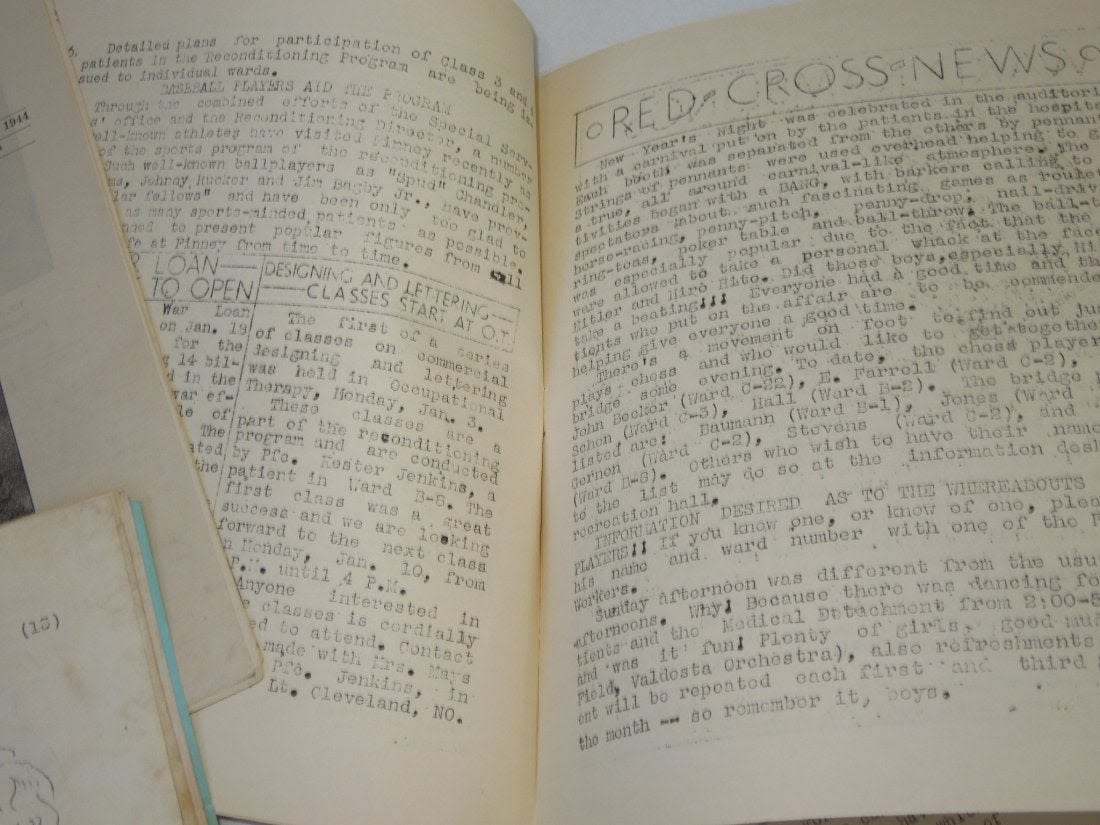 1944
6. Detailed plans for participation of Class 3 and 4
patients in the Reconditioning Program are being is-
sued to individual wards.
BASEBALL PLAYERS AID THE PROGRAM
Through the combined efforts of the Special Serv-
s' office and the Reconditioning Director, a number
ell-known athletes have visited Finney recently as
of the sports program of the reconditioning pro-
Such well-known ballplayers as "Spud" Chandler,
ms, Johnny Rucker and Jim Bagby Jr., have prov-
lar fellows" and have been only too glad to
as many sports-minded patients as possible.
nned to present popular figures from all
fe at Finney from time to time.
R LOAN
TO OPEN
War Loan
on Jan. 19
for the
g 14 bil-
d in the
war ef-
le of
The
ated
the
DESIGNING AND LETTERING
CLASSES START AT O.T.
The first of a series
of classes on commercial
designing and lettering
was held in Occupational
Therapy, Monday, Jan. 3.
These classes are a
part of the reconditioning
program and are conducted
by Pfc. Kester Jenkins, a
patient in Ward B-8. The
first class was a great
success and we are looking
forward to the next class
n Monday, Jan. 10, from
P.M. until 4 P.M.
Anyone interested in
s classes is cordially
ed to attend. Contact
made with Mrs. Mays
Pfc. Jenkins, in
Lt. Cleveland, NO.
(15)
RED CROSS NEWS
New Year's Night was celebrated in the auditori
with a carnival put on by the patients in the hospita
Each booth was separated from the others by pennan
Strings of pennants were used overhead helping to g
a true, all around carnival-like atmosphere. The
tivities began with a BANG, with barkers calling to
spectators about such fascinating games as roulet
horse-racing, penny-pitch, penny-drop, nail-driv
ring-toss, poker table and ball-throw. The ball-t
was especially popular due to the fact that the
were allowed to take a personal whack at the face
Hitler and Hiro Hito. Did those boys, especially Hi
take a beating!!! Everyone had a good time and th
tients who put on the affair are to be commende
helping give everyone a good time.
There's a movement on foot to find out jus
plays chess and who would like to get together
bridge some evening. To date, the chess player
John Becker (Ward C-22), E. Farrell (Ward C-2),
Schon (Ward C-3), Hall (Ward B-2). The bridge p
listed are: Baumann (Ward B-1), Jones (Ward
Gernon (Ward C-2), Stevens (Ward C-2), and
(Ward B-8). Others who wish to have their name
to the list may do so at the information desk
recreation hall.
INFORMATION DESIRED AS TO THE WHEREABOUTS
PLAYERS!! If you know one, or know of one, plea
his name and ward number with one of the R
workers.
Sunday afternoon was different from the usu
afternoons. Why? Because there was dancing fo
tients and the Medical Detachment from 2:00-5
and was it fun! Plenty of girls, good mus
Field, Valdosta Orchestra), also refreshments
ent will be repeated each first and third
the month -- so remember it, boys.